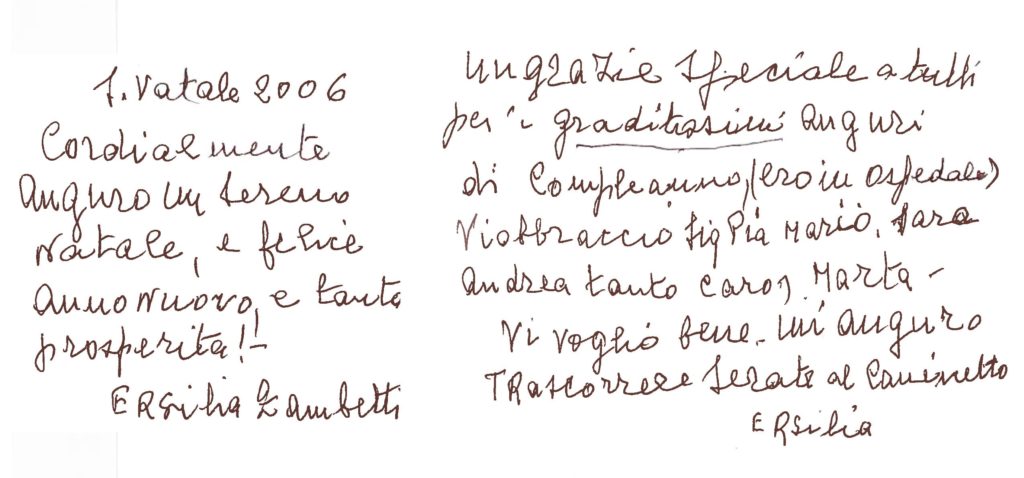 S. Natale 2006
Cordialmente
auguro un sereno
Natale, e felice
anno nuovo, e tanta
prosperità!-
Ersilia Zambetti
un grazie speciale a tutti
per i graditissimi auguri
di Compleanno, (ero in ospedale)
Vi abbraccio Sig Pia Mario, Sara
Andrea tanto caro, Marta -
Vi voglio bene. mi auguro
TRascorrere serate al Caminetto
Ersilia